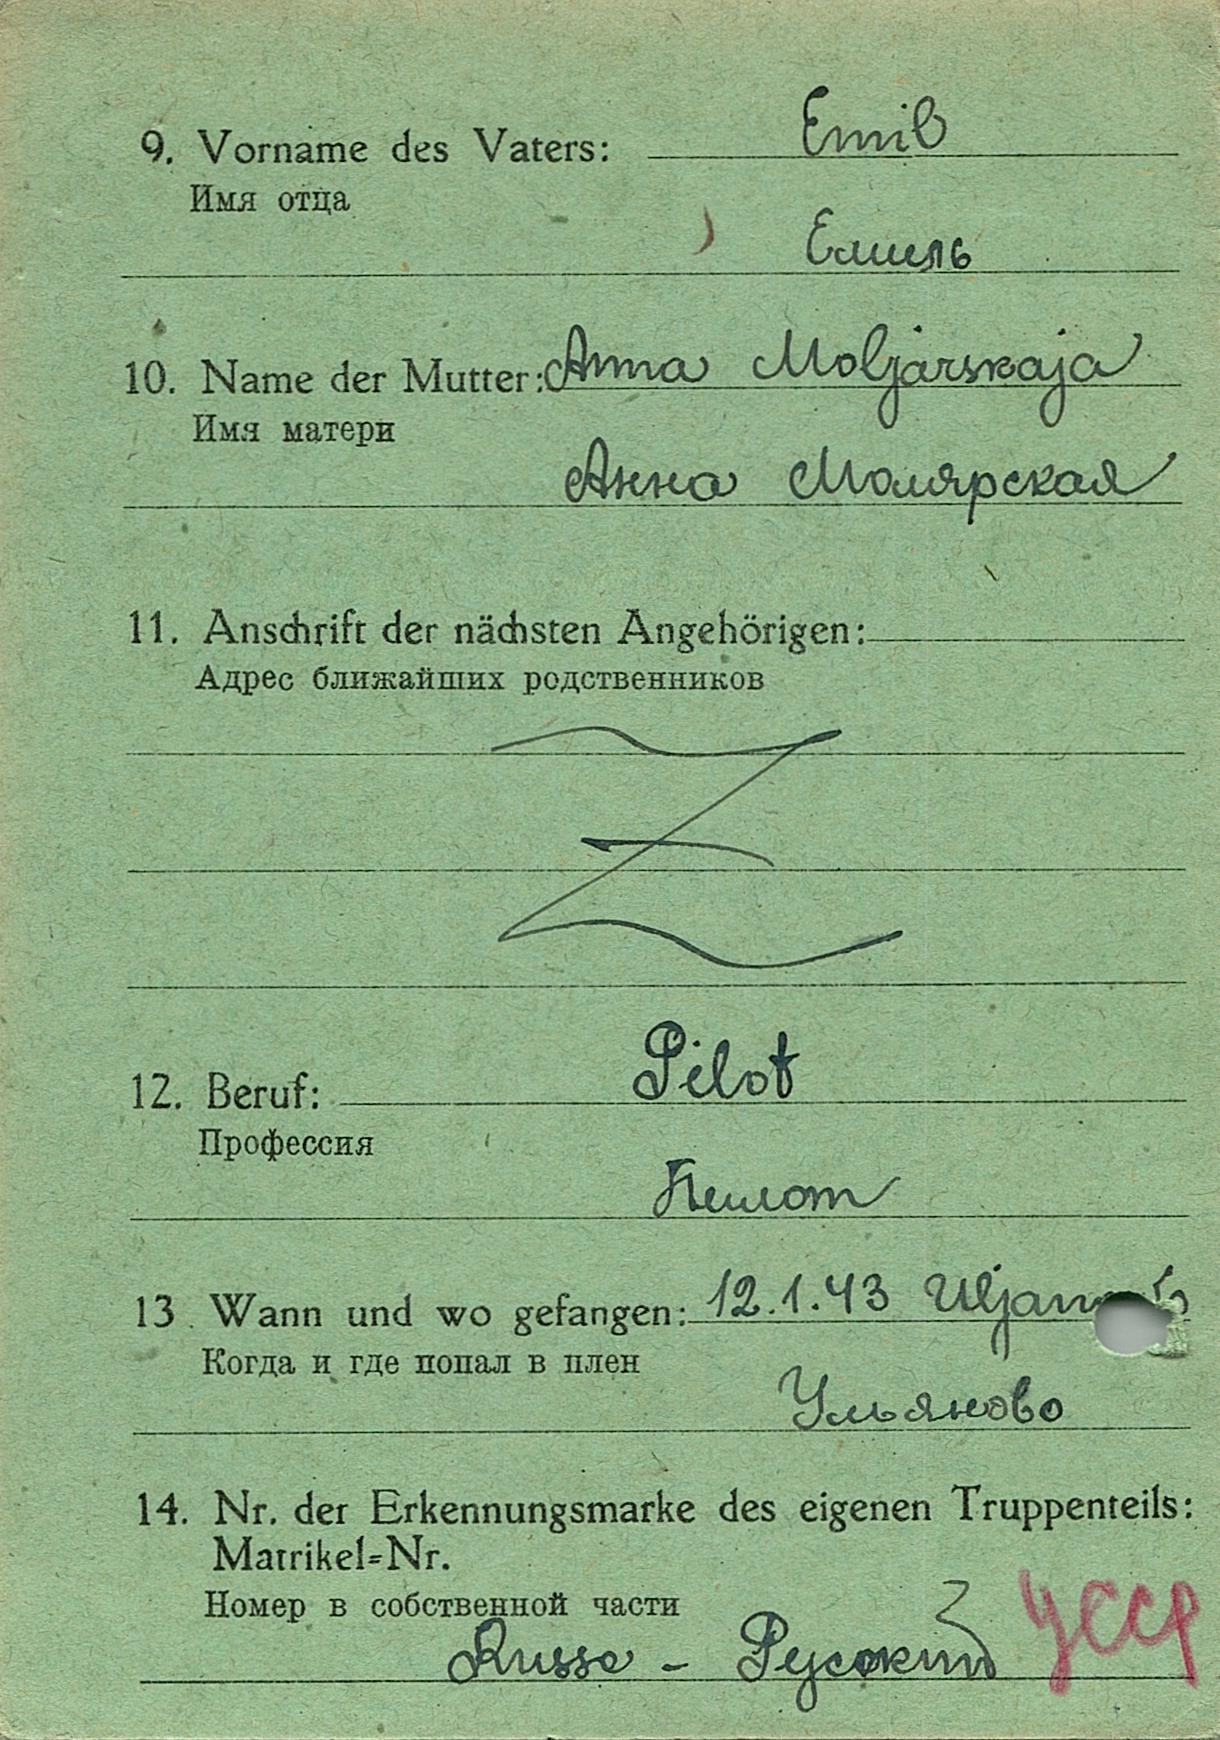 9. Vorname des Vaters: Emil
Имя отца
Емиль
10. Name der Mutter: Anna Moljarskaja
Имя матери
Анна Молярская
11. Anschrift der nächsten Angehörigen:
Адрес ближайших родственников
12. Beruf: Pilot
Профессия
Пилот
13. Wann und wo gefangen: 12.1.43
Когда и где попал в плен
Ульяново
14. Nr. der Erkennungsmarke des eigenen Truppenteils:
Matrikel=Nr.
Номер в собственной части
Russe - Русский УССР